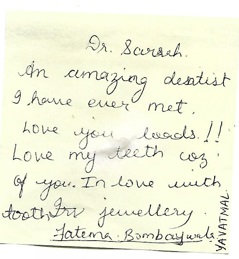 Dr. Sarach.
An amazing destist
I have ever met.
Love you loads!!
Love my teeth coz
of you. In love with
tooth jewellery.
Fatema Bombaywala
YAVATMAL